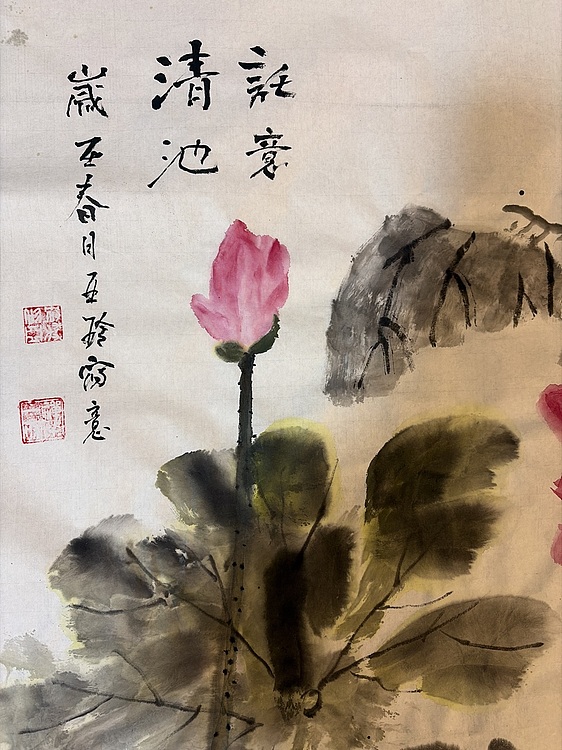 託意
清池
歲春日玲寫意